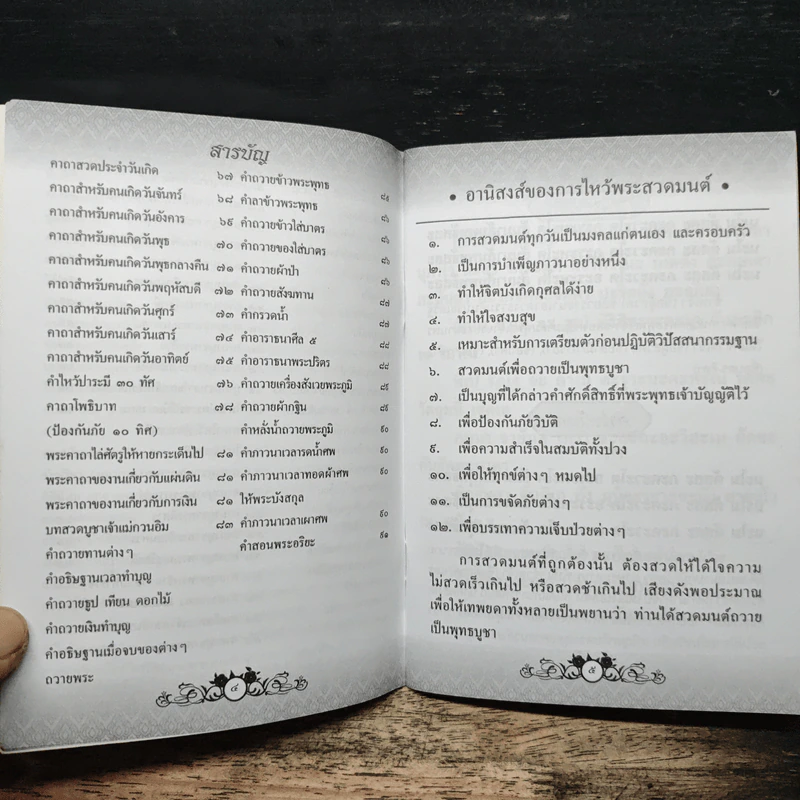 สารบัญ
คาถาสวดประจำวันเกิด ๖๗
คาถาสำหรับคนเกิดวันจันทร์ ๖๘
คาถาสำหรับคนเกิดวันอังคาร ๖๙
คาถาสำหรับคนเกิดวันพุธ ๗๐
คาถาสำหรับคนเกิดวันพุธกลางคืน ๗๑
คาถาสำหรับคนเกิดวันพฤหัสบดี ๗๒
คาถาสำหรับคนเกิดวันศุกร์ ๗๓
คาถาสำหรับคนเกิดวันเสาร์ ๗๔
คาถาสำหรับคนเกิดวันอาทิตย์ ๗๕
คำไหว้ปาระมี ๓๐ ทัศ ๗๖
คาถาโพธิบาท ๗๘
(ป้องกันภัย ๑๐ ทิศ)
พระคาถาไล่ศัตรูให้หายกระเด็นไป ๘๑
พระคาถาของานเกี่ยวกับแผ่นดิน ๘๑
พระคาถาของานเกี่ยวกับการเงิน ๘๑
บทสวดบูชาเจ้าแม่กวนอิม ๘๓
คำถวายทานต่างๆ
คำอธิษฐานเวลาทำบุญ
คำถวายธูป เทียน ดอกไม้
คำถวายเงินทำบุญ
คำอธิษฐานเมื่อจบของต่างๆ
ถวายพระ
คำถวายข้าวพระพุทธ ๘๕
คำลาข้าวพระพุทธ ๘๖
คำถวายข้าวใส่บาตร ๘๖
คำถวายของใส่บาตร ๘๖
คำถวายผ้าป่า ๘๖
คำถวายสังฆทาน ๘๗
คำกรวดน้ำ ๘๗
คำอาราธนาศีล ๕ ๘๘
คำอาราธนาพระปริตร ๘๘
คำถวายเครื่องสังเวยพระภูมิ ๘๙
คำถวายผ้ากฐิน ๘๙
คำหลั่งน้ำถวายพระภูมิ ๙๐
คำภาวนาเวลารดน้ำศพ ๙๐
คำภาวนาเวลาทอดผ้าศพ
ให้พระบังสกุล
คำภาวนาเวลาเผาศพ ๙๐
คำสอนพระอริยะ ๙๑
๔
• อานิสงส์ของการไหว้พระสวดมนต์ •
๑. การสวดมนต์ทุกวันเป็นมงคลแก่ตนเอง และครอบครัว
๒. เป็นการบำเพ็ญภาวนาอย่างหนึ่ง
๓. ทำให้จิตบังเกิดกุศลได้ง่าย
๔. ทำให้ใจสงบสุข
๕. เหมาะสำหรับการเตรียมตัวก่อนปฏิบัติวิปัสสนากรรมฐาน
๖. สวดมนต์เพื่อถวายเป็นพุทธบูชา
๗. เป็นบุญที่ได้กล่าวคำศักดิ์สิทธิ์ที่พระพุทธเจ้าบัญญัติไว้
๘. เพื่อป้องกันภัยวิบัติ
๙. เพื่อความสำเร็จในสมบัติทั้งปวง
๑๐. เพื่อให้ทุกข์ต่างๆ หมดไป
๑๑. เป็นการขจัดภัยต่างๆ
๑๒. เพื่อบรรเทาความเจ็บป่วยต่างๆ
การสวดมนต์ที่ถูกต้องนั้น ต้องสวดให้ได้ใจความ
ไม่สวดเร็วเกินไป หรือสวดช้าเกินไป เสียงดังพอประมาณ
เพื่อให้เทพยดาทั้งหลายเป็นพยานว่า ท่านได้สวดมนต์ถวาย
เป็นพุทธบูชา
๕